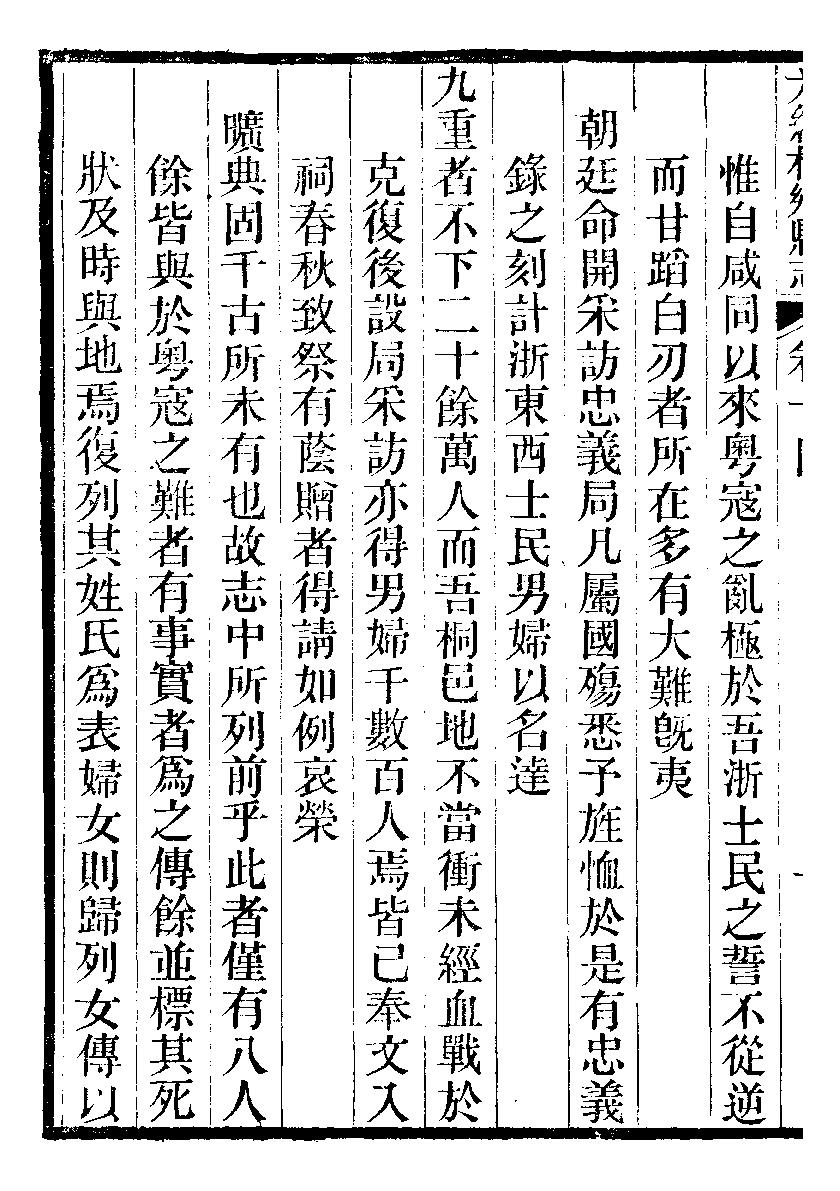 光緒桐鄉縣志 卷十四
惟自咸同以來粵寇之亂極於吾浙士民之誓不從逆
而甘蹈白刃者所在多有大難旣夷
朝廷命開采訪忠義局凡屬國殤悉予旌恤於是有忠義
錄之刻計浙東西士民男婦以名達
九重者不下二十餘萬人而吾桐邑地不當衝未經血戰於
克復後設局采訪亦得男婦千數百人焉皆已奉文入
祠春秋致祭有蔭贈者得請如例哀榮
曠典固千古所未有也故志中所列前乎此者僅有八人
餘皆與於粵寇之難者有事實者爲之傳餘並標其死
狀及時與地焉復列其姓氏爲表婦女則歸列女傳以